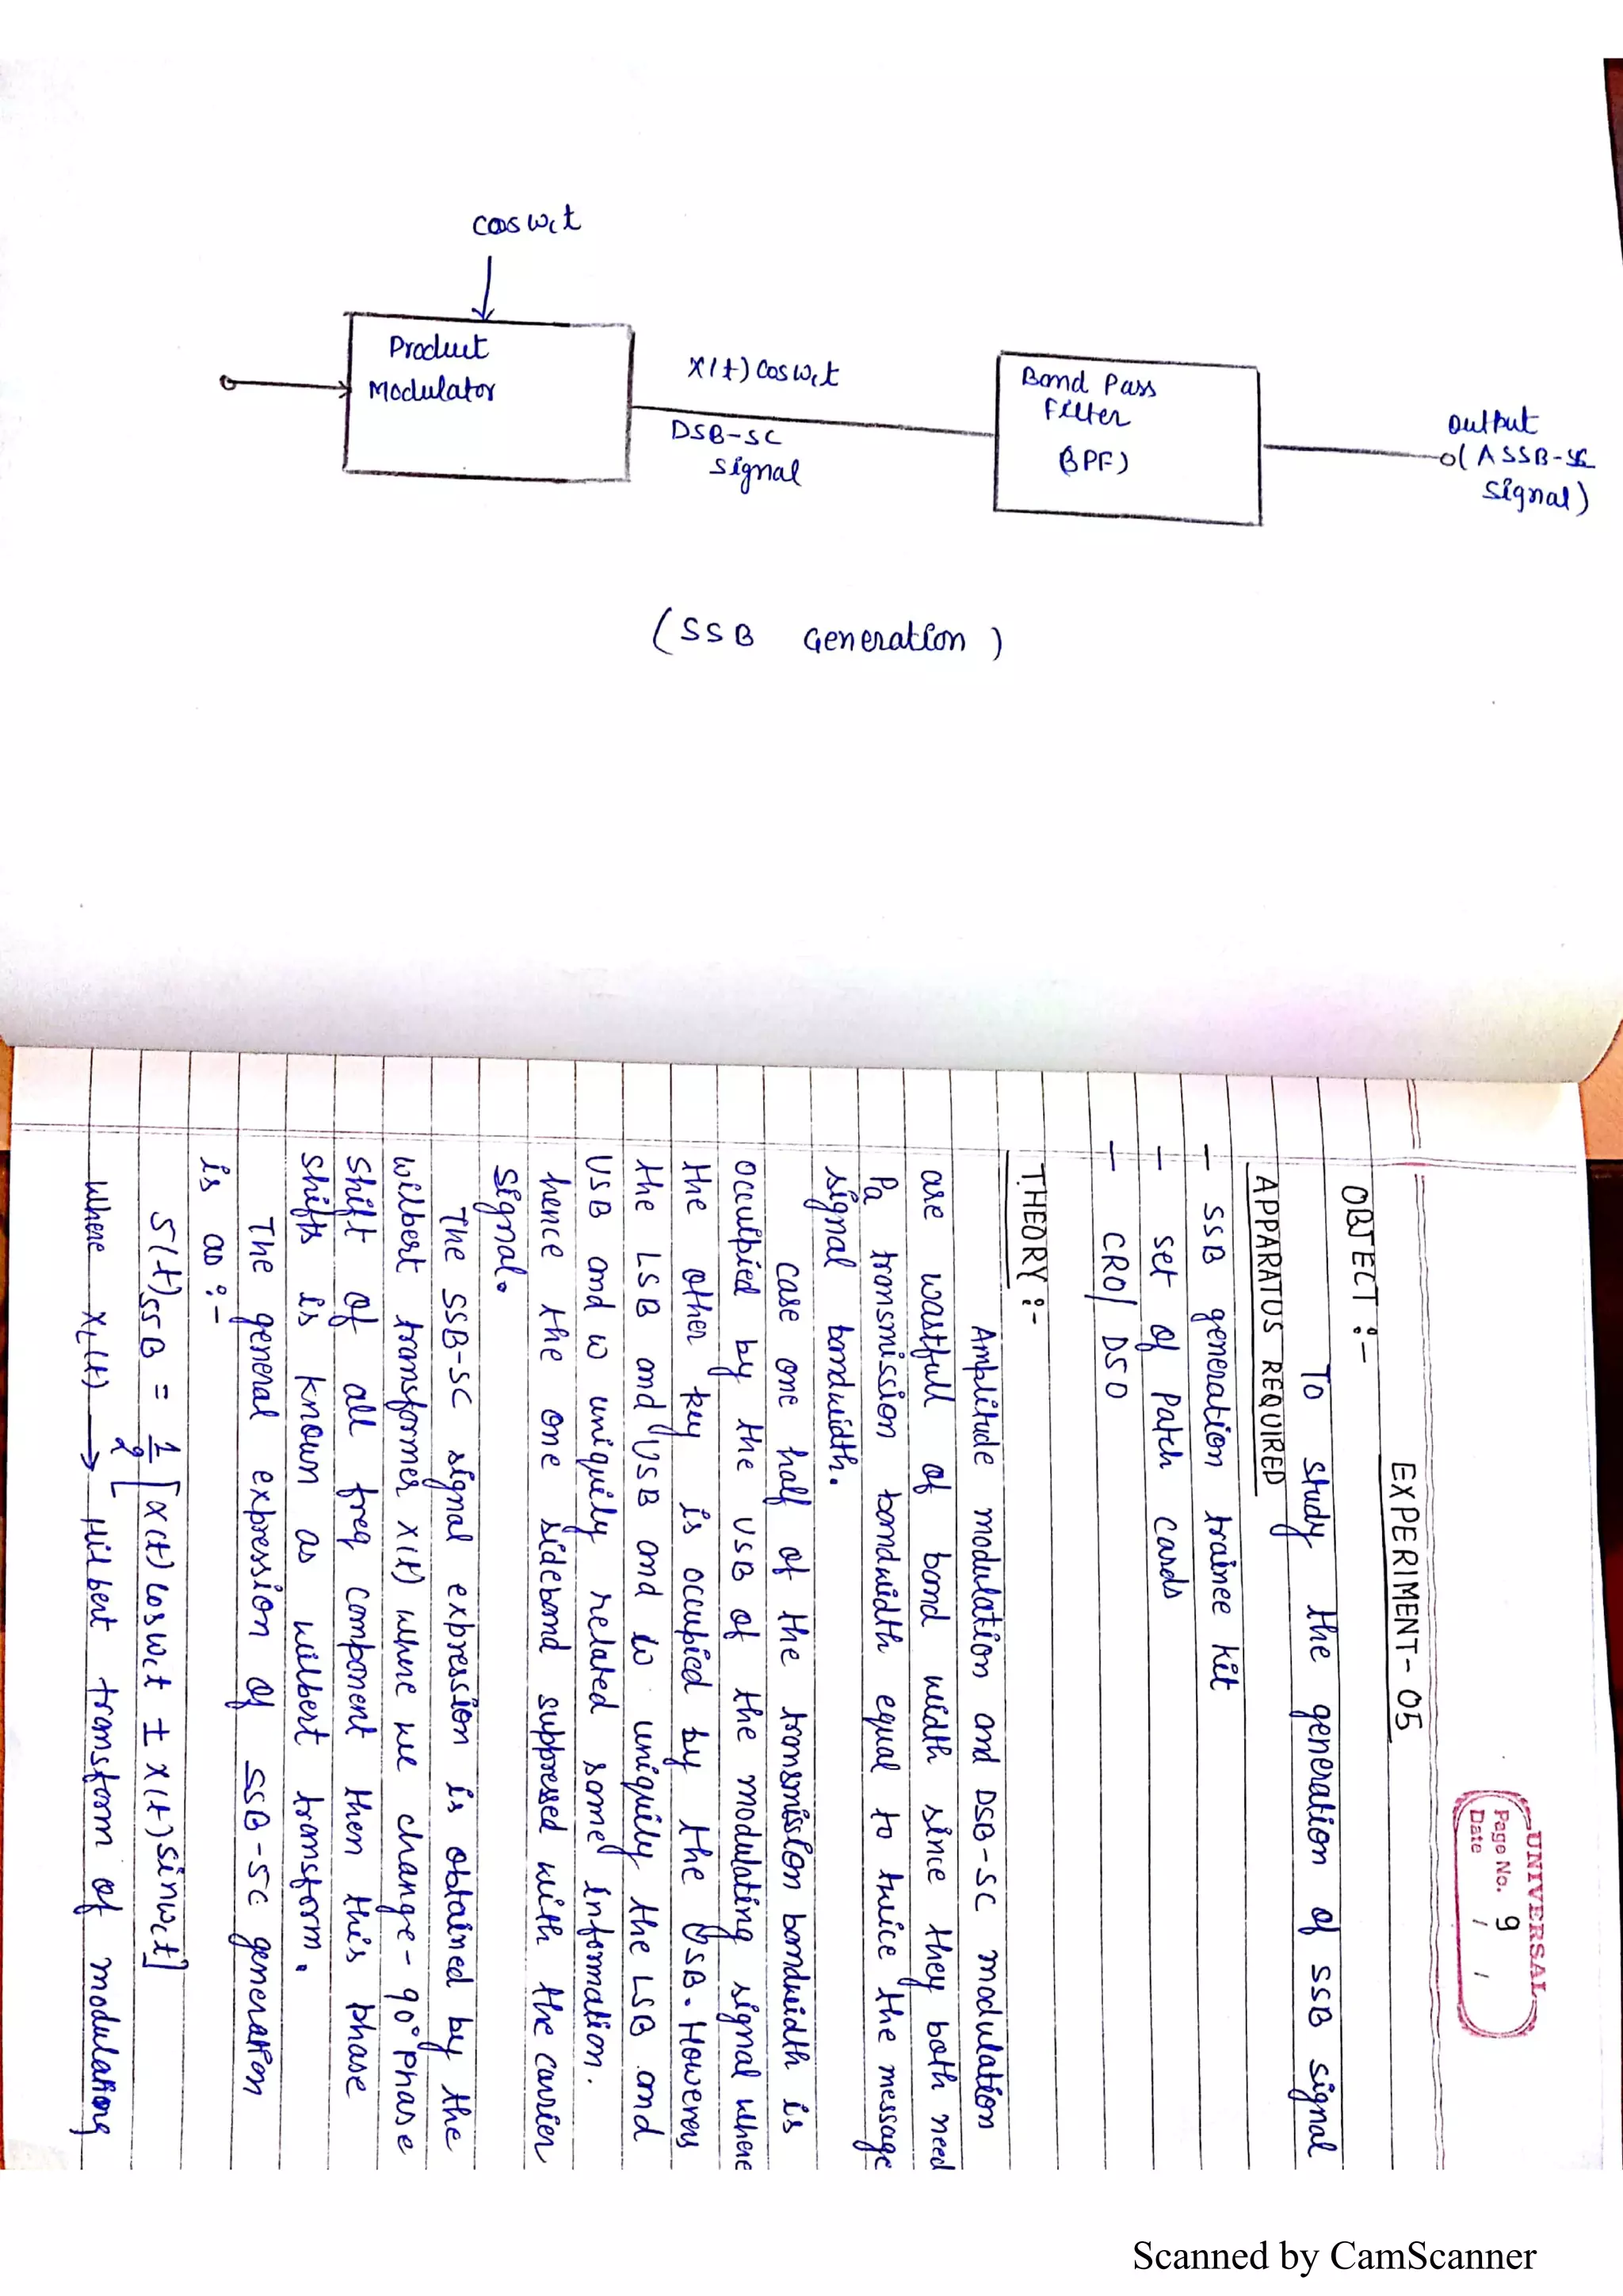 cos wct
Product
Modulator
x(t) cos wct
DSB-SC
signal
Band Pass
Filter
(BPF)
output
(A SSB-SC
signal)
(SSB Generation)
UNIVERSAL
Page No. 9
Date / /
EXPERIMENT-05
OBJECT :-
To study the generation of SSB signal
APPARATUS REQUIRED
- SSB generation trainee kit
- set of Patch Cards
- CRO/ DSO
THEORY :-
Amplitude modulation and DSB-SC modulation
are wastfull of band width since they both need
Pa transmission bandwidth equal to twice the message
signal bandwidth.
case one half of the transmission bandwidth is
occupied by the USB of the modulating signal where
the other key is occupied by the USB. Howevers
the LSB and USB and w uniquily the LSB and
USB and w uniquily related same information.
hence the one sideband suppressed with the carrier
signal.
The SSB-SC signal expression is obtained by the
wilbert transformer x(t) where we change -90° phase
shift of all freq component then this phase
shifts is known as wilbert transform.
The general expression of SSB-SC generation
is as :-
S(t)SSB = 1/2 [x(t) cos wct ± x(t) sin wct]
where xL(t) → Hilbert transform of modulating
Scanned by CamScanner